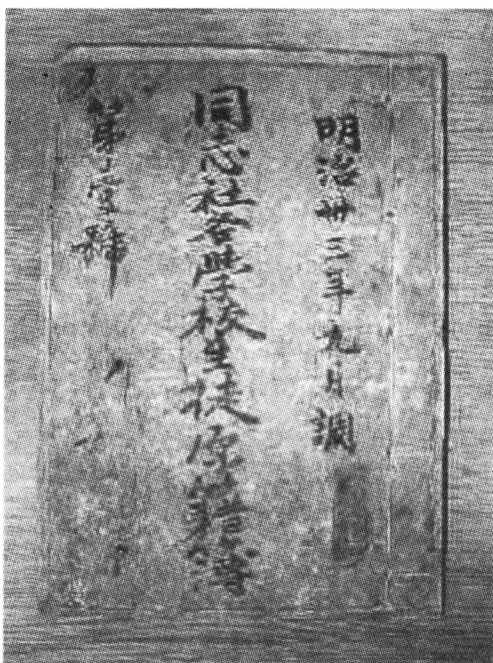 明治卅三年九月調
同志社各學校生徒原籍簿
第壹種